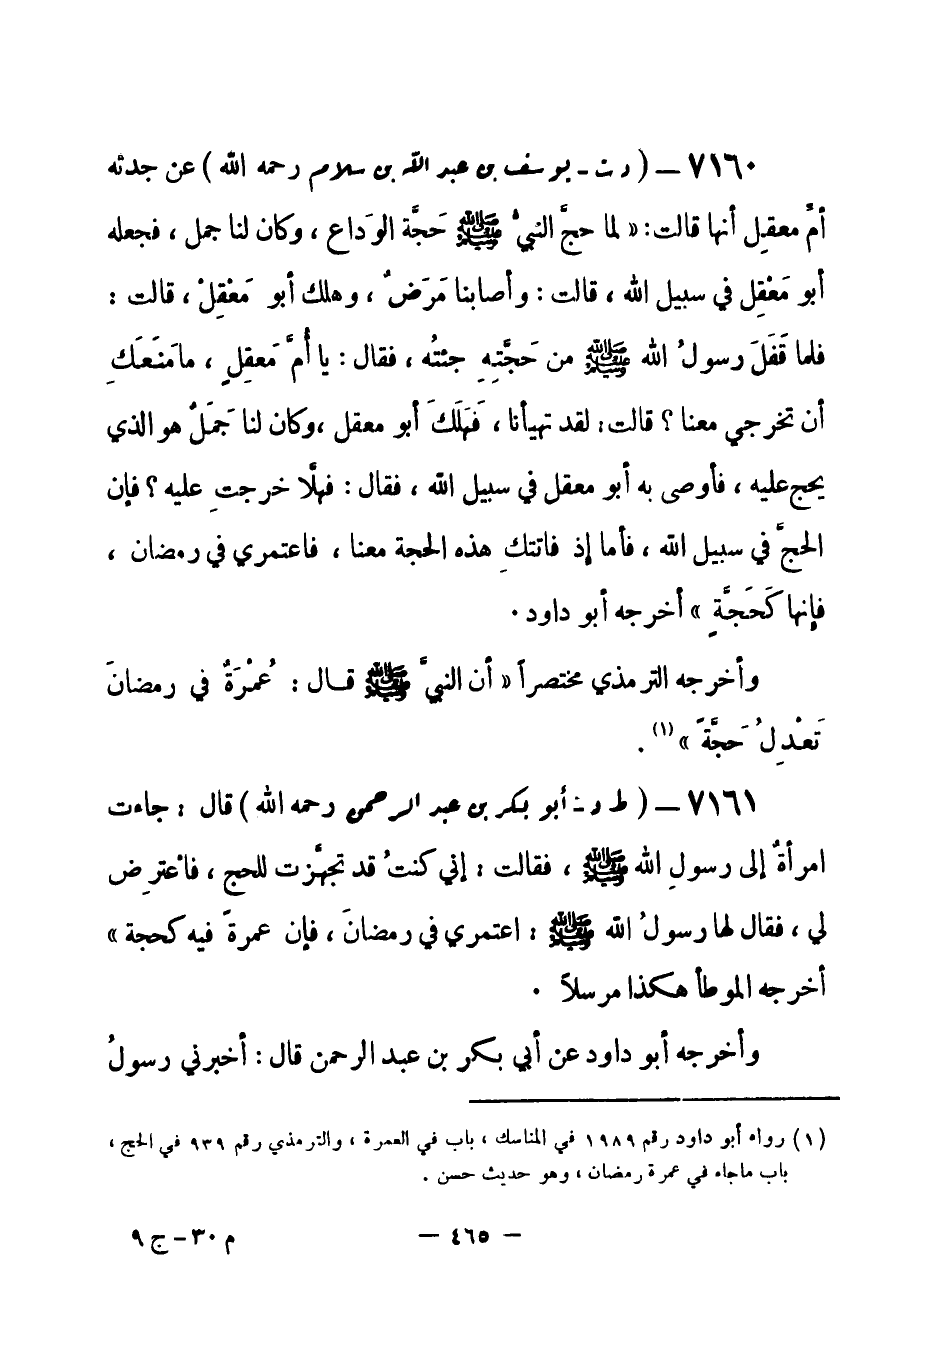 ٧١٦٠ — ( د ت - يوسف بن عبد الله بن سلام رحمه الله ) عن جدته
أمِّ معقِل أنها قالت: « لما حجَّ النبيُّ ﷺ حَجَّة الوَداع ، وكان لنا جمل ، فجعله
أبو مَعْقِل في سبيل الله ، قالت : وأصابنا مَرَضٌ ، وهلك أبو مَعْقِلْ ، قالت :
فلما قَفَلَ رسولُ الله ﷺ من حَجَّتِهِ جئتُه ، فقال : يا أُمَّ مَعقِلٍ ، مامَنَعَكِ
أن تخرجي معنا ؟ قالت : لقد تهيأنا ، فَهَلَكَ أبو معقل ،وكان لنا جَمَلٌ هو الذي
يحج عليه ، فأوصى به أبو معقل في سبيل الله ، فقال : فهلَّا خرجتِ عليه ؟ فإن
الحجَّ في سبيل الله ، فأما إذ فاتتكِ هذه الحجة معنا ، فاعتمري في رمضان ،
فإنها كَحَجَّةٍ » أخرجه أبو داود .
وأخرجه الترمذي مختصراً « أن النبيَّ ﷺ قال : عُمْرَةٌ في رمضانَ
تَعْدِلُ حَجَّةً » (١) .
٧١٦١ — ( ط د - أبو بكر بن عبد الرحمن رحمه الله ) قال : جاءت
امرأةٌ إلى رسولِ الله ﷺ ، فقالت : إني كنتُ قد تجهَّزت للحج ، فاعْترِض
لي ، فقال لها رسولُ الله ﷺ : اعتمري في رمضانَ ، فإن عمرةً فيه كحجة »
أخرجه الموطأ هكذا مرسلاً .
وأخرجه أبو داود عن أبي بكر بن عبد الرحمن قال : أخبرني رسولُ
(١) رواه أبو داود رقم ١٩٨٩ في المناسك ، باب في العمرة ، والترمذي رقم ٩٣٩ في الحج ،
باب ماجاء في عمرة رمضان ، وهو حديث حسن .
— ٤٦٥ — م ٣٠ - ج ٩